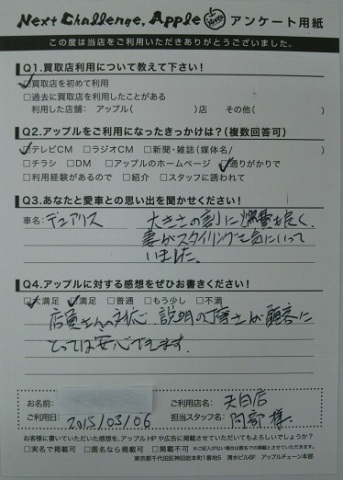 Next Challenge, Apple アンケート用紙
この度は当店をご利用いただきありがとうございました。
Q1.買取店利用について教えて下さい!
☑買取店を初めて利用
□過去に買取店を利用したことがある
利用した店舗: アップル( )店 その他( )
Q2.アップルをご利用になったきっかけは?(複数回答可)
☑テレビCM □ラジオCM □新聞・雑誌(媒体名/ )
□チラシ □DM □アップルのホームページ ☑通りがかりで
□利用経験があるので □紹介 □スタッフに誘われて
Q3.あなたと愛車との思い出を聞かせください!
車名: デュアリス 大きさの割に燃費も良く、
妻がスタイリングを気にいって
いました。
Q4.アップルに対する感想をぜひお書きください!
□大満足 ☑満足 □普通 □もう少し □不満
店員さんの対応、説明の 顧客に
とっては安心できます。
お名前: ご利用店名: 天白店
ご利用日: 2015/03/06 担当スタッフ名: 阿部様
お客様に書いていただいた感想を、アップルHPや広告に掲載させていただいてもよろしいでしょうか?
□実名で掲載可 □匿名なら掲載可 □掲載不可 ※ご記入がない場合は匿名での掲載とさせていただきます。
東京都千代田区神田岩本町1番地5 清水ビル8F アップルチェーン本部